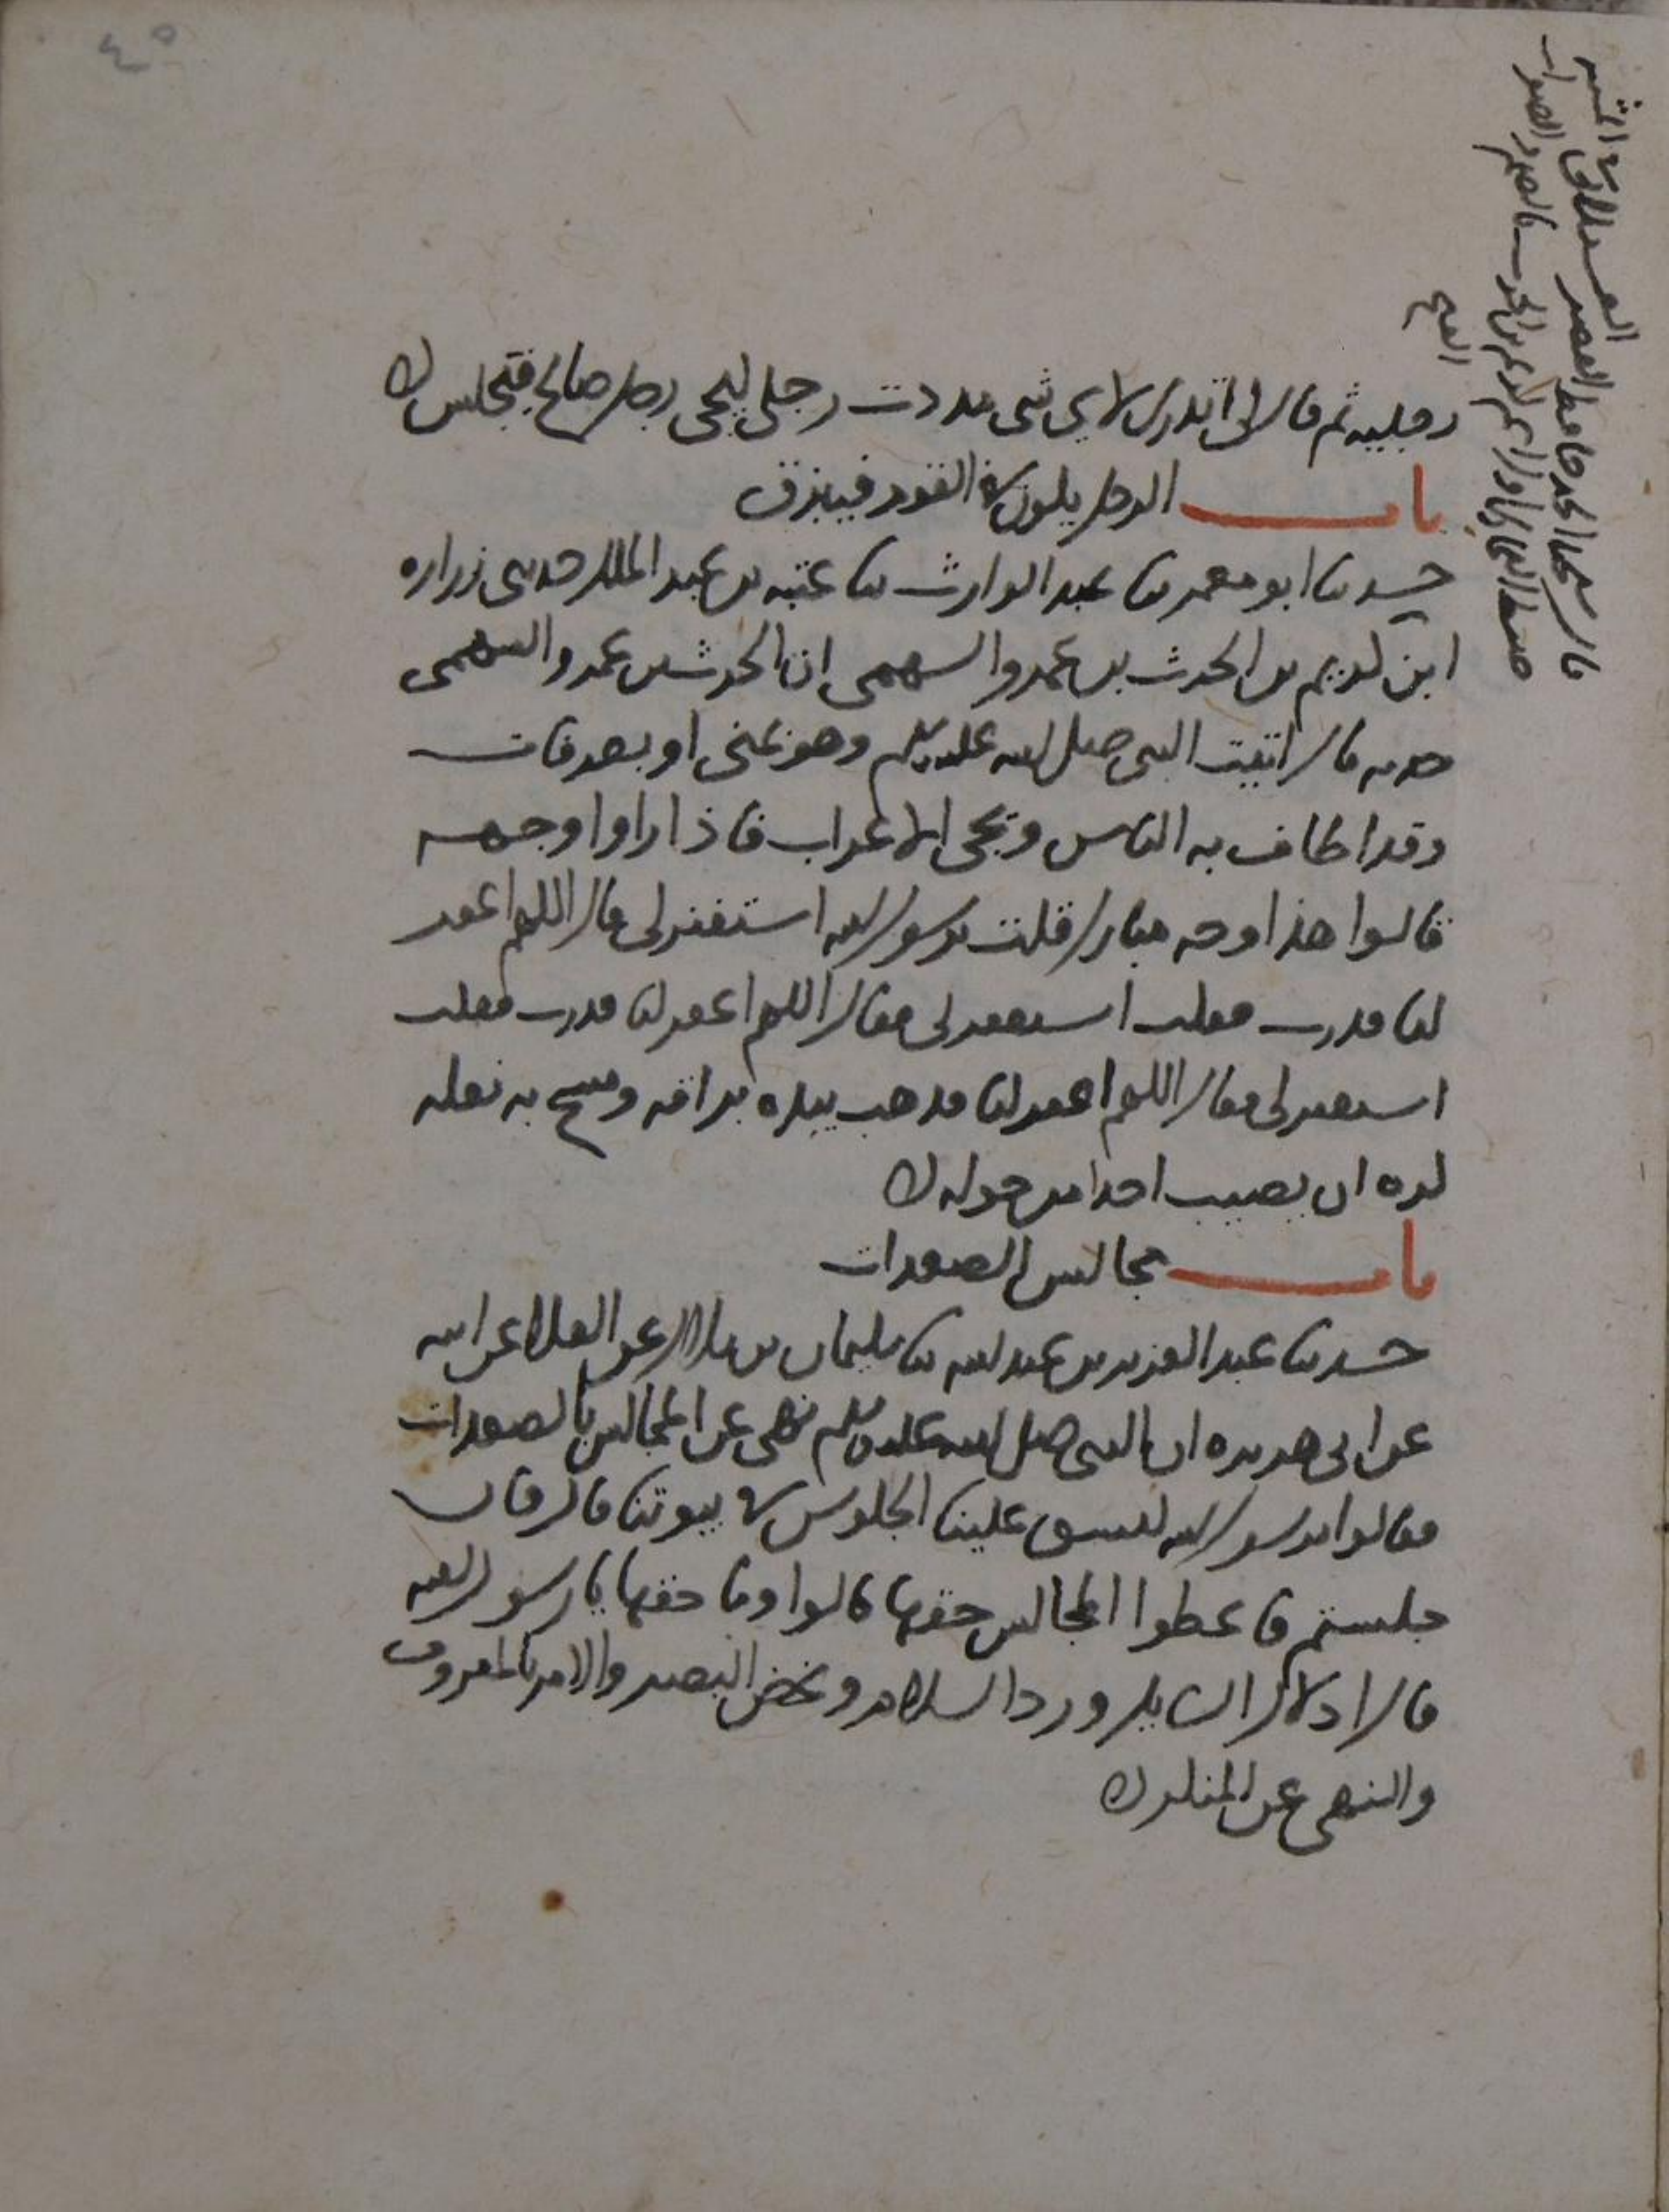 ٤٥
رجليه ثم قال لى اتدرى لاي شى مددت رجلى ليجى رجل صالح فيجلس
باب الرجل يكون فى القوم فيبزق
حدثنا ابو معمر ثنا عبد الوارث ثنا عتبه بن عبد الملك حدثنى زراره
ابن كريم بن الحرث بن عمرو السهمى ان الحرث بن عمرو السهمى
حدثه قال اتيت النبى صلى الله عليه وسلم وهو بمنى او بعرفات
وقد اطاف به الناس ويجى الاعراب فاذا راوا وجهه
قالوا هذا وجه مبارك قلت يرسول الله استغفر لى قال اللهم اغفر
لنا فدرت فقلت استغفر لى فقال اللهم اغفر لنا فدرت فقلت
استغفر لى فقال اللهم اغفر لنا فذهب بيده بزاقه ومسح به نعله
كره ان يصيب احدا من حوله
باب مجالس الصعدات
حدثنا عبد العزيز بن عبد الله ثنا سليمان بن بلال عن العلا عن ابيه
عن ابى هريره ان النبى صلى الله عليه وسلم نهى عن المجالس بالصعدات
فقالوا يرسول الله ليشق علينا الجلوس فى بيوتنا قال فان
جلستم فاعطوا المجالس حقها قالوا وما حقها يا رسول الله
قال ادلال السايل ورد السلام وغض البصر والامر بالمعروف
والنهى عن المنكر
قال شيخنا الحجه حافظ العصر العسقلانى فى المشتبه